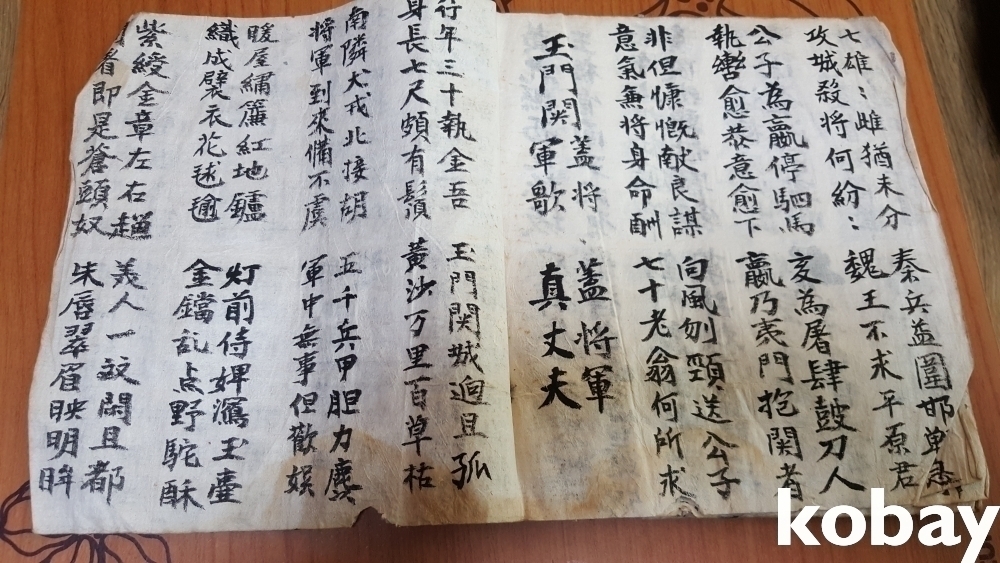 七雄:雌猶未分
攻城殺將何紛:
秦兵益圍邯鄲急
魏王不求平原君
公子為嬴停駟馬
執轡愈恭意愈下
亥為屠肆鼓刀人
嬴乃夷門抱関者
非但慷慨献良謀
意氣兼將身命酬
向風刎頸送公子
七十老翁何所求
玉門関蓋將軍歌
蓋將軍
真丈夫
行年三十執金吾
身長七尺頗有鬚
玉門関城迥且孤
黃沙万里百草枯
南隣犬戎北接胡
將軍到來備不虞
五千兵甲胆力麤
軍中無事但歡娯
暖屋繡簾紅地鑪
織成襞衣花毬毺
灯前侍婢瀉玉壺
金鐺乱点野駝酥
紫綬金章左右趨
者即是蒼頭奴
美人一䉶閑且都
朱唇翠眉映明眸
kobay